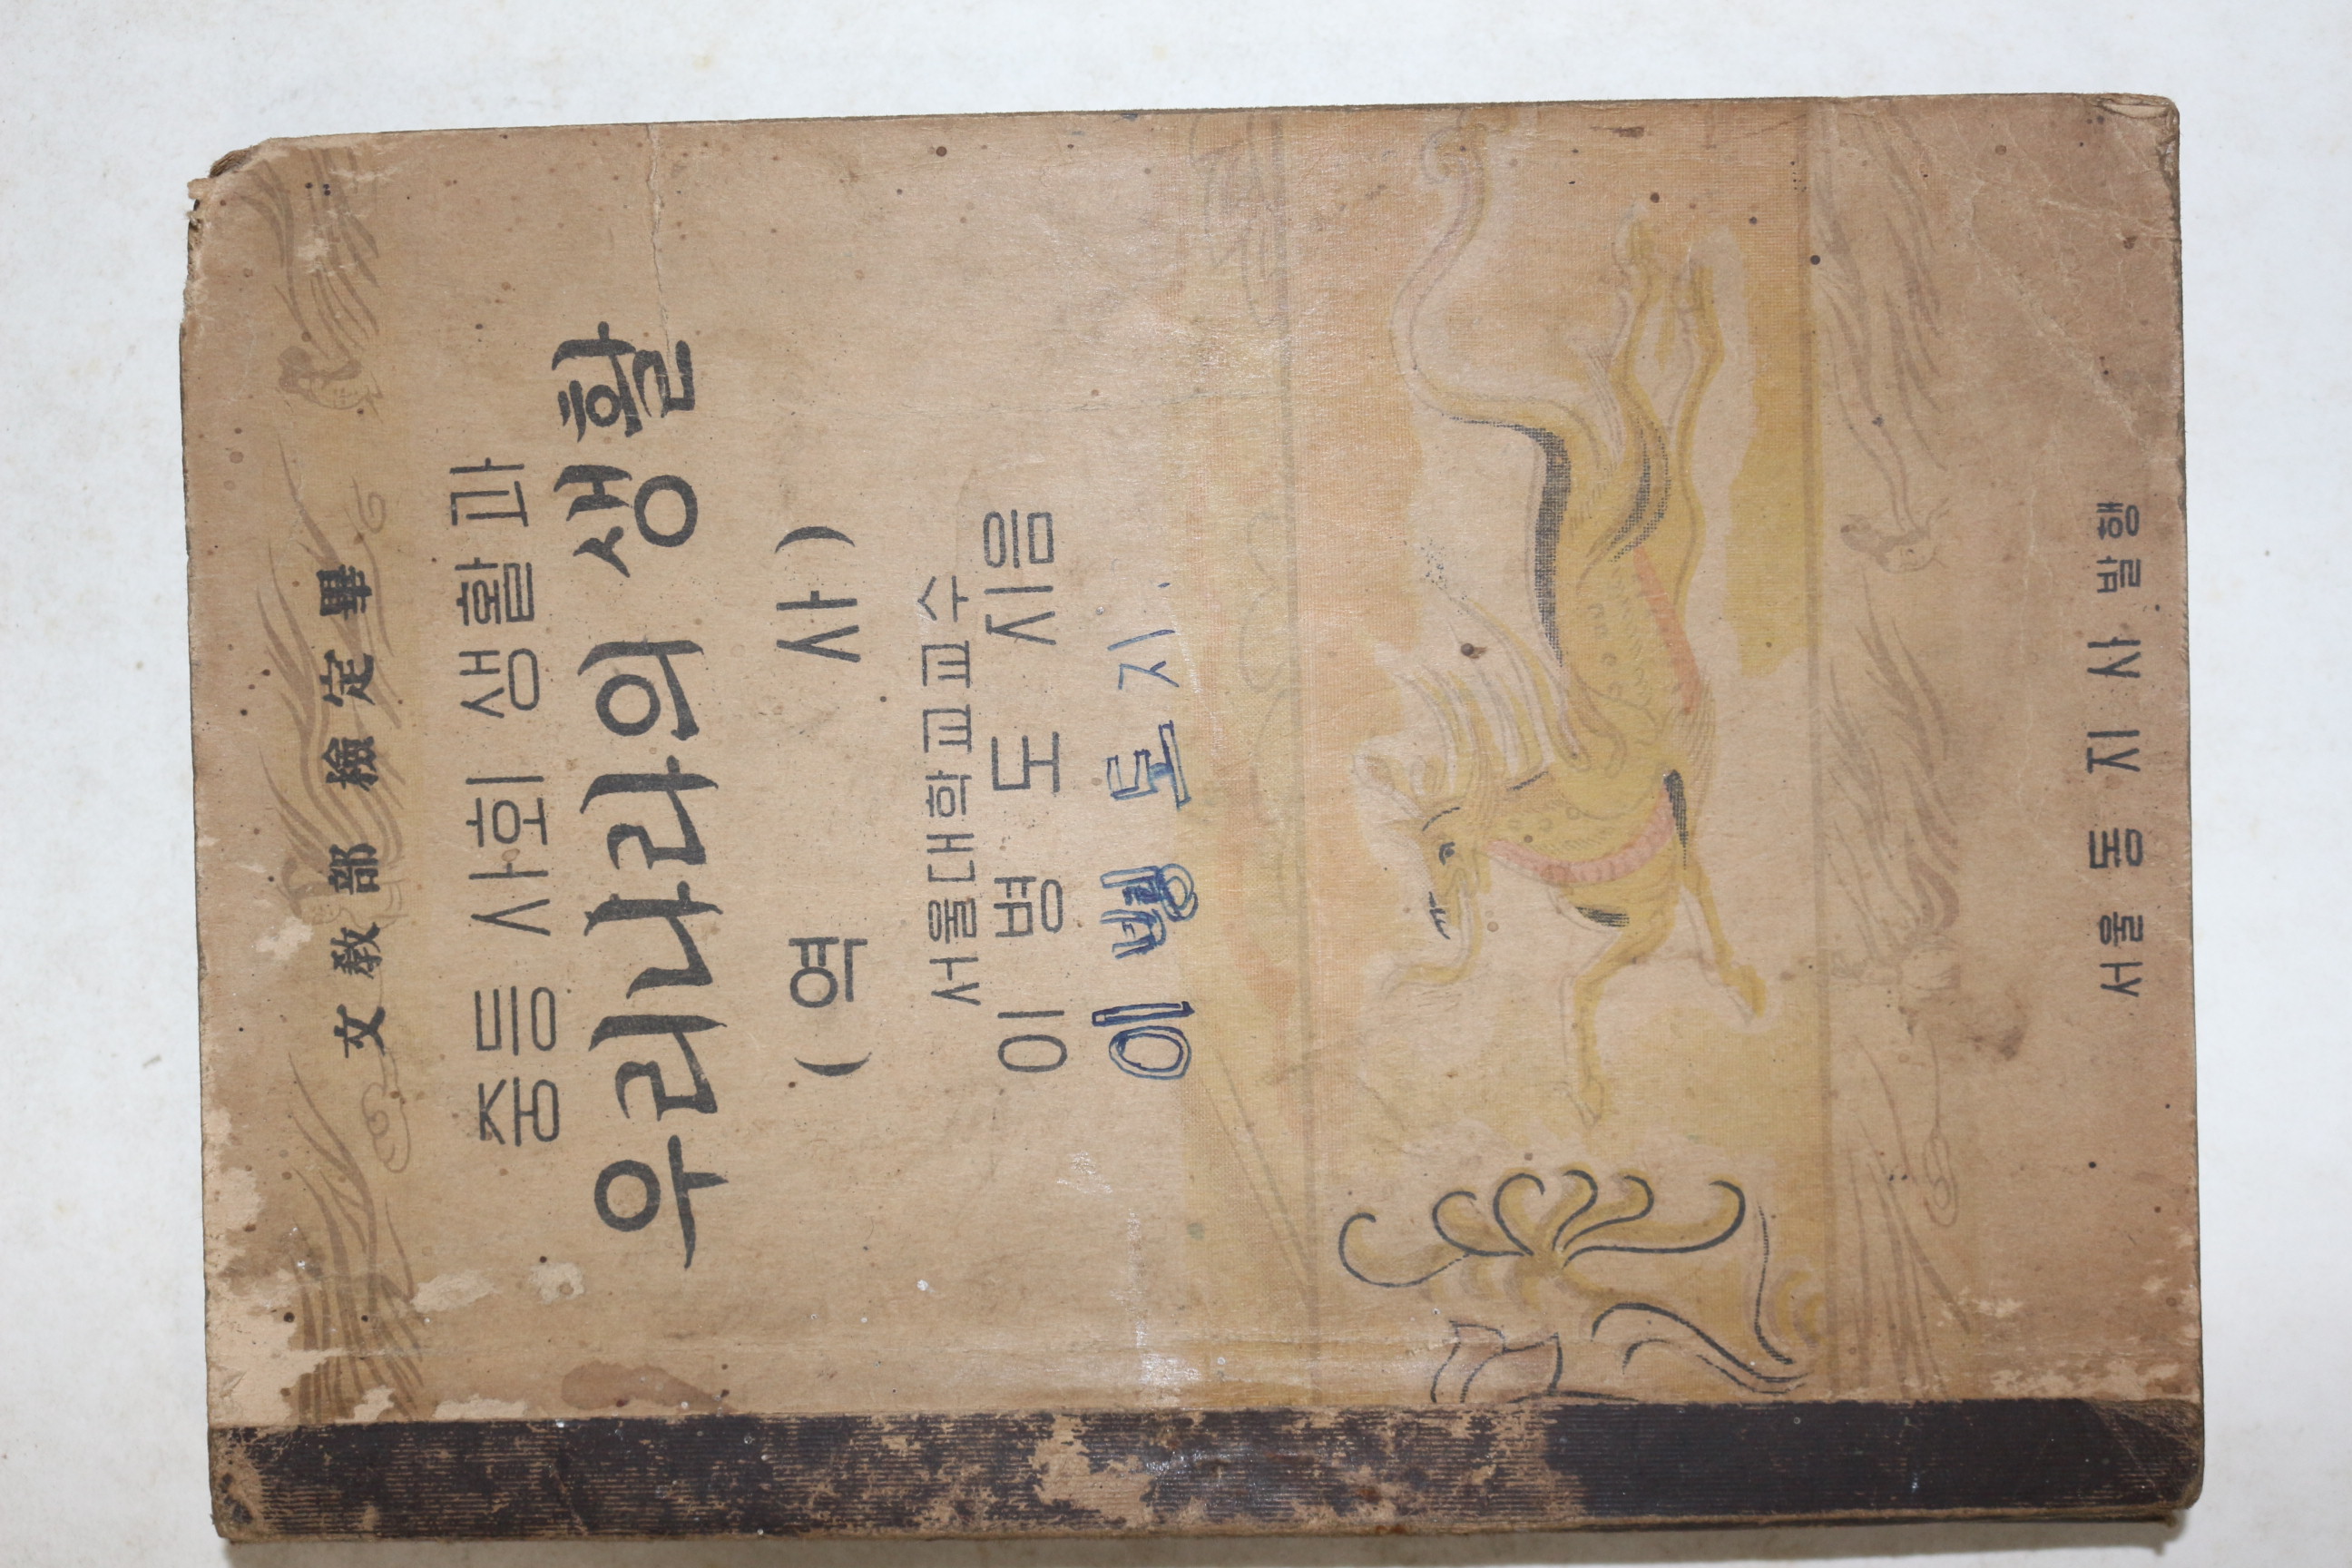 文敎部 檢定畢
중등 사회 생활과
우리나라의 생활
( 역 사 )
서울대학교교수
이 병 도 지음
이 병 도 지.
서울 동지사 발행